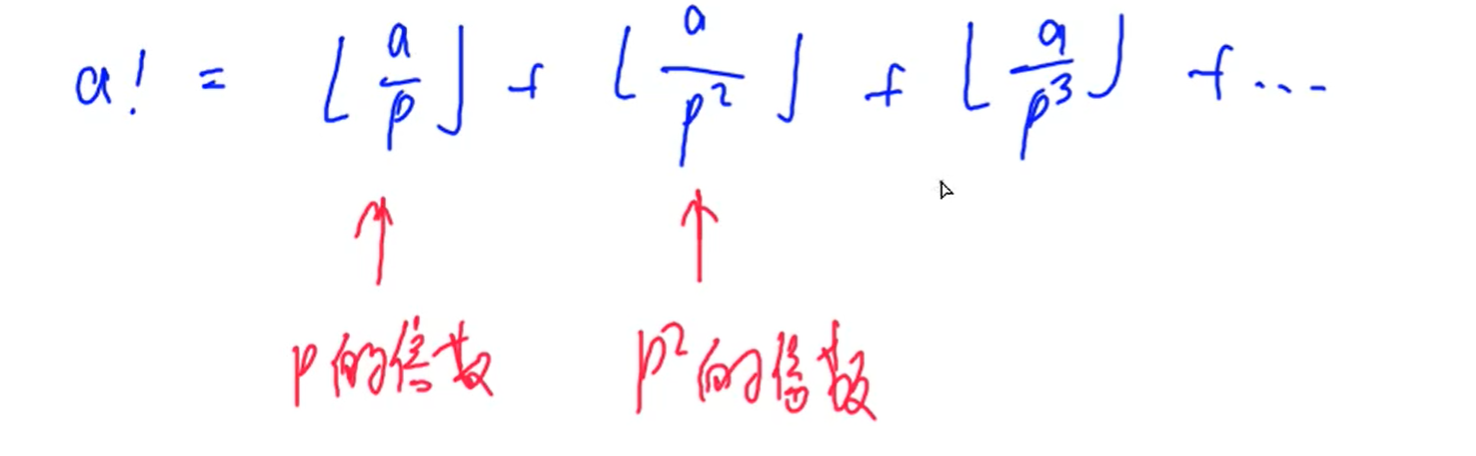 a! = ⌊a/p⌋ + ⌊a/p²⌋ + ⌊a/p³⌋ + ...
p的倍数 p²的倍数